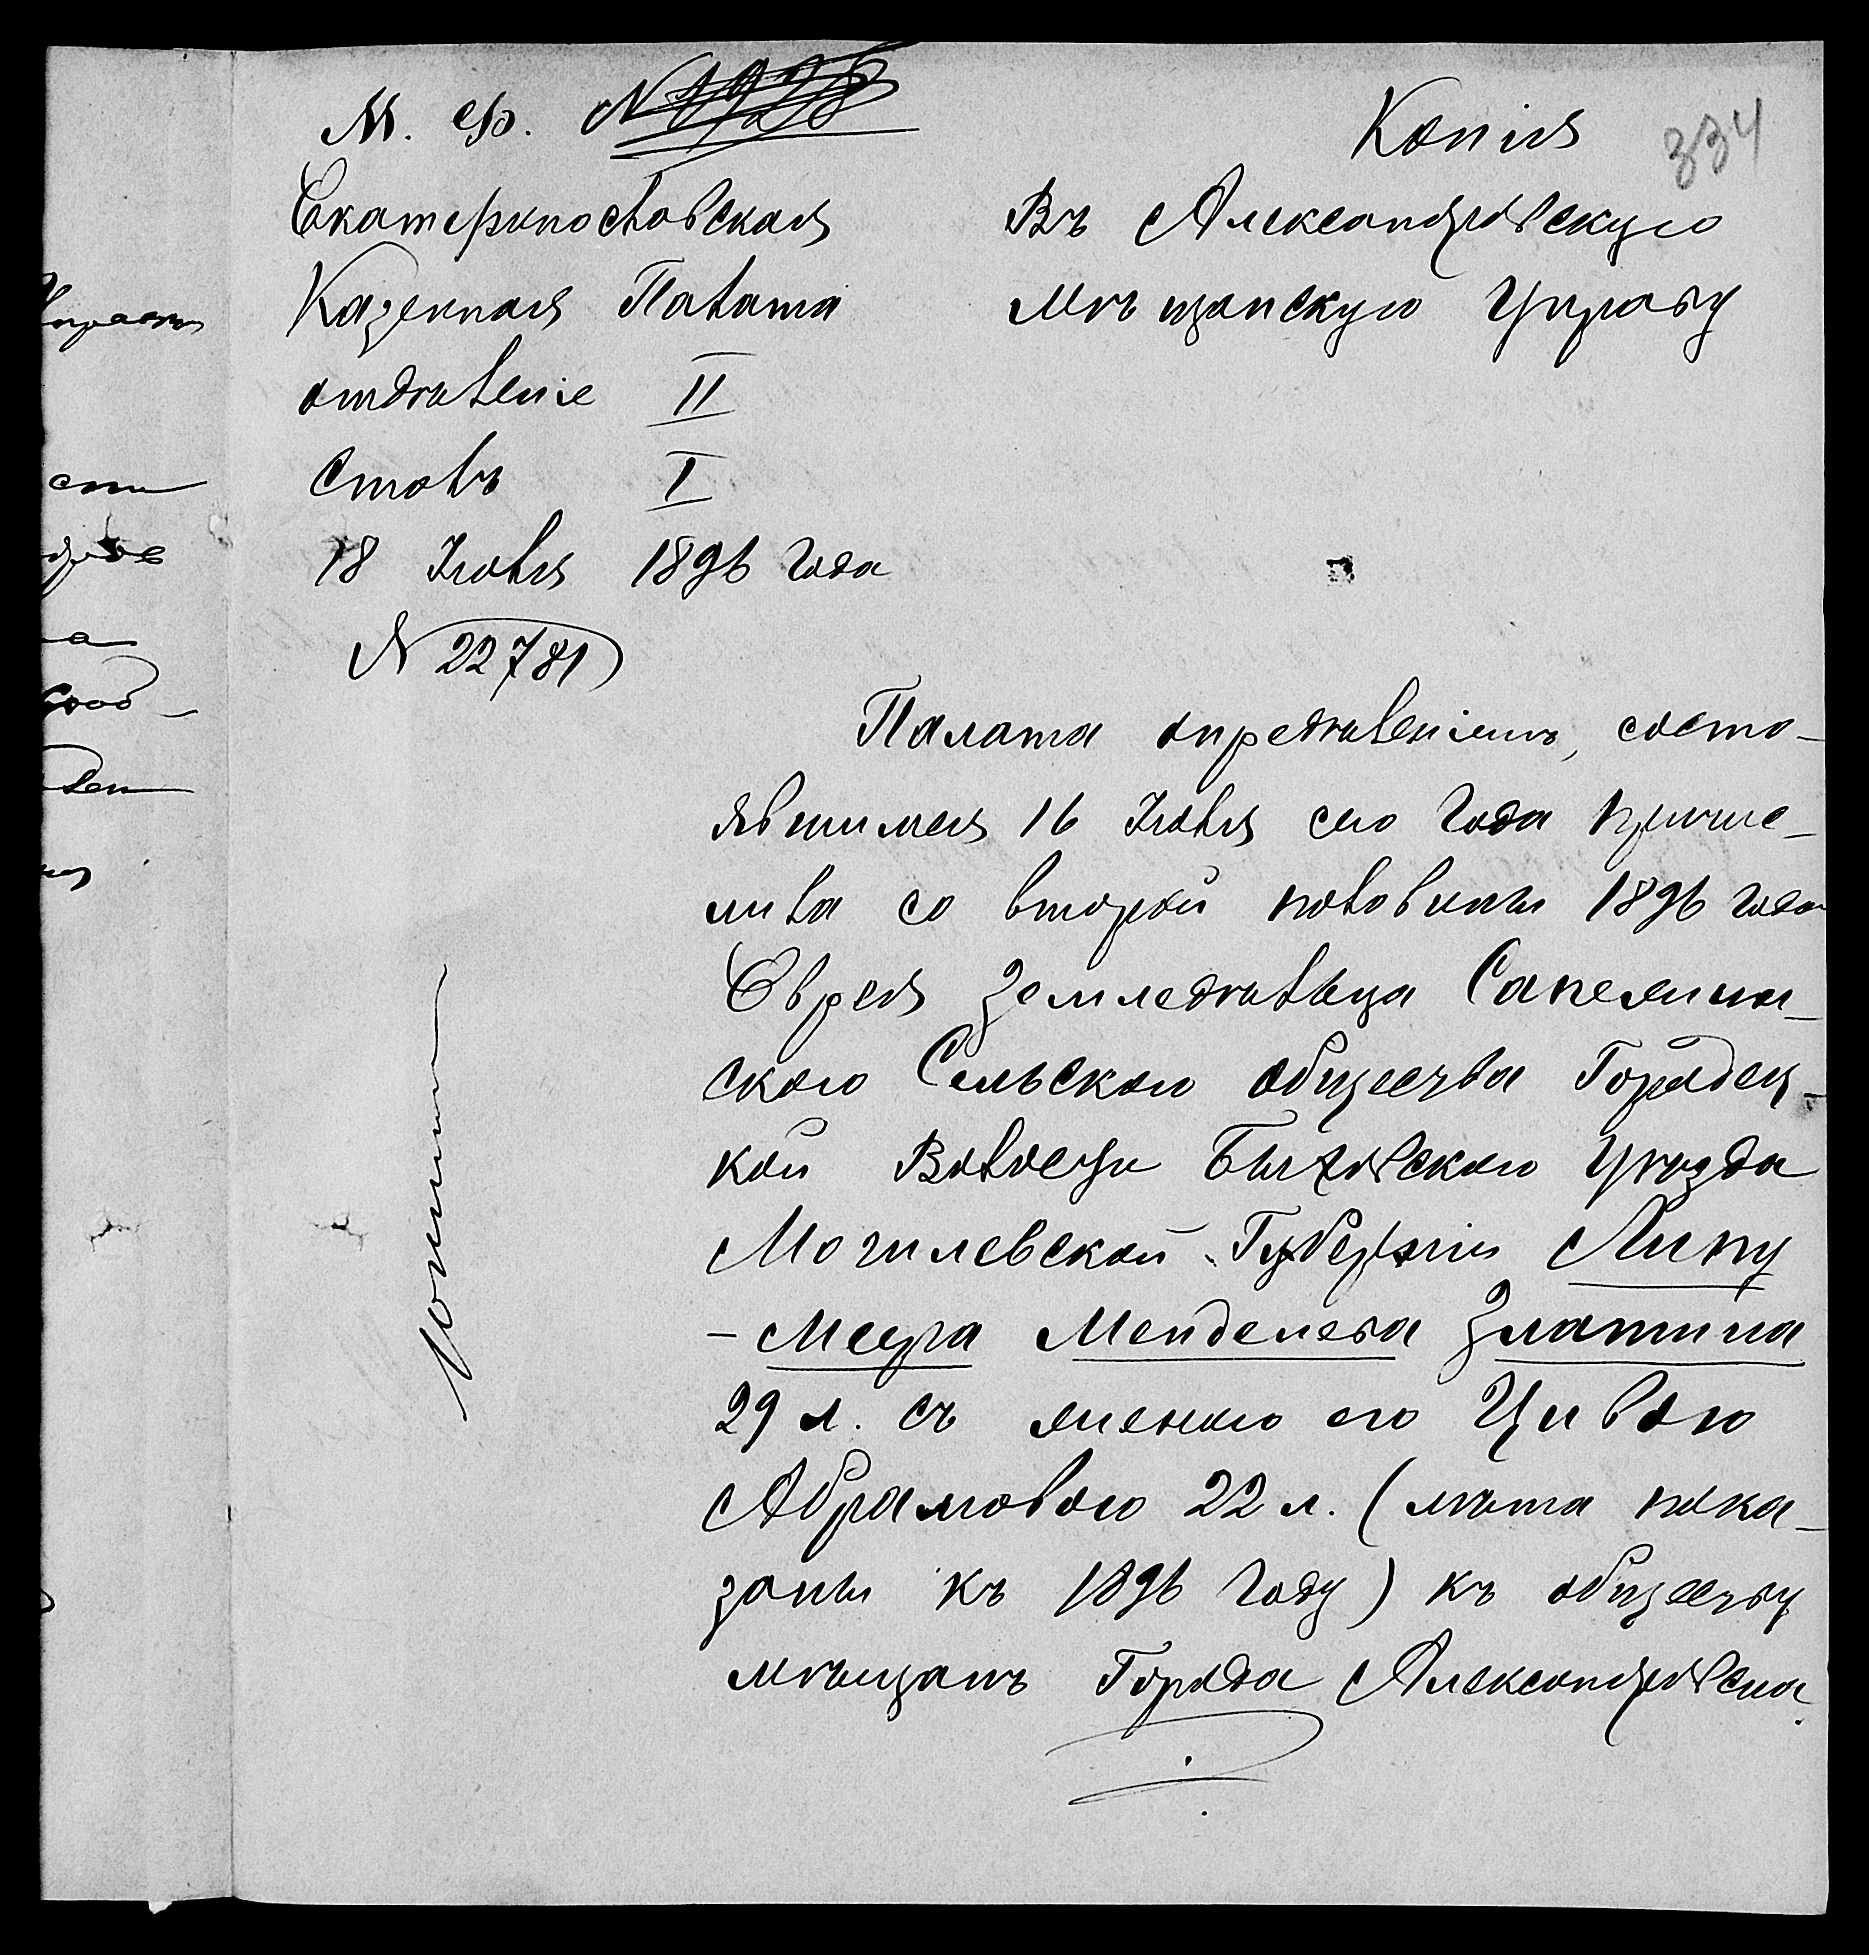 М. Ф.
Копія
334
Екатеринославская
Казенная Палата
отдѣленіе II
Столъ I
18 Іюля 1896 года
N 22781
Въ Александровскую
Мѣщанскую Управу
Палата опредѣленіемъ, состо-
явшимся 16 Іюля сего года причи-
слила со второй половины 1896 года
Еврея Земледѣльца
скаго Сельскаго общества Городец-
кой Волости Быховскаго Уѣзда
Могилевской Губерніи
- Меера Менделева Златина
29 л. съ женою его Цивою
Абрамовою 22 л. (лѣта пока-
заны къ 1896 году) къ обществу
мѣщанъ Города Александровска.